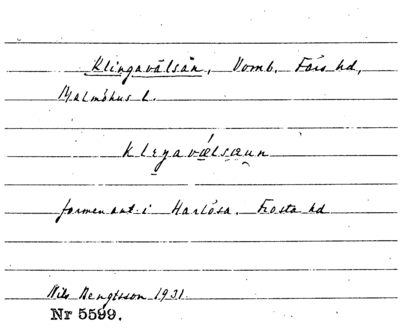 Klingavälsån, Vomb, Färs hd,
Malmöhus l.
klɛŋavǽlsæun
formen ant. i Harlösa, Frosta hd
Nils Bengtsson 1931.
Nr 5599.